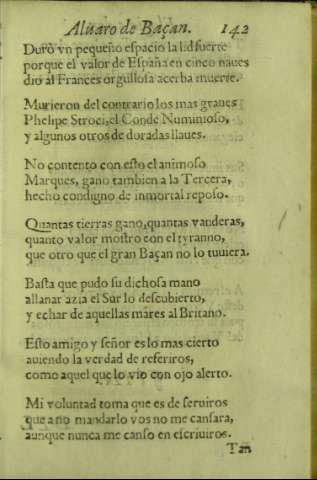 Aluaro de Baçan. 142
Durò vn pequeño espacio la lid fuerte
porque el valor de España en cinco naues
dio al Frances orgullosa acerba muerte.
Murieron del contrario los mas graues
Phelipe Stroci, el Conde Numinioso,
y algunos otros de doradas llaues.
No contento con esto el animoso
Marques, gano tambien a la Tercera,
hecho condigno de inmortal reposo.
Quantas tierras gano, quantas vanderas,
quanto valor mostro con el tyranno,
que otro que el gran Baçan no lo tuuiera.
Basta que pudo su dichosa mano
allanar azia el Sur lo descubierto,
y echar de aquellas mares al Britano.
Esto amigo y señor es lo mas cierto
auiendo la verdad de referiros,
como aquel que lo vio con ojo alerto.
Mi voluntad toma que es de seruiros
que a no mandarlo vos no me cansara,
aunque nunca me canso en escriuiros.
Tan